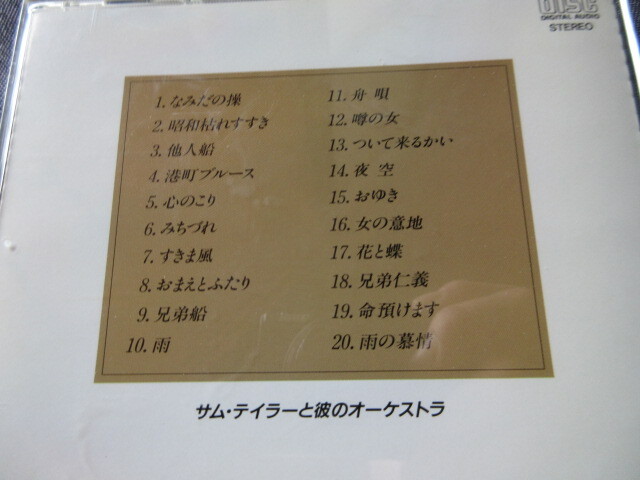 DISC
DIGITAL AUDIO
STEREO
1. なみだの操
2. 昭和枯れすすき
3. 他人船
4. 港町ブルース
5. 心のこり
6. みちづれ
7. すきま風
8. おまえとふたり
9. 兄弟船
10. 雨
11. 舟 唄
12. 噂の女
13. ついて来るかい
14. 夜 空
15. おゆき
16. 女の意地
17. 花と蝶
18. 兄弟仁義
19. 命預けます
20. 雨の慕情
サム・テイラーと彼のオーケストラ